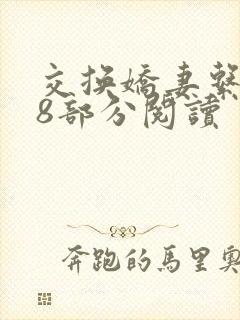 交換嬌妻系
8部分閱讀
奔跑的馬里奧